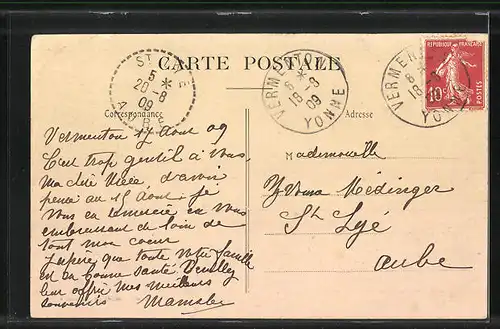 CARTE POSTALE
Correspondance
Adresse
ST LYÉ
5
20-8
09
AUBE
VERMENTON
6
18-8
09
YONNE
VERMENTON
6
18-8
YONNE
REPUBLIQUE FRANÇAISE
10c
Vermenton 17 Aout 09
C'est trop gentil à vous,
Ma chère d'avoir
pensé au 15 Aout. Je
vous en remercie en vous
embrassant de loin de
tout mon coeur
J'espère que toute votre famille
est en bonne santé Veuillez
leur offrir mes meilleurs
souvenirs
Mademoiselle
Yvonne Médinger
St Lyé
Aube